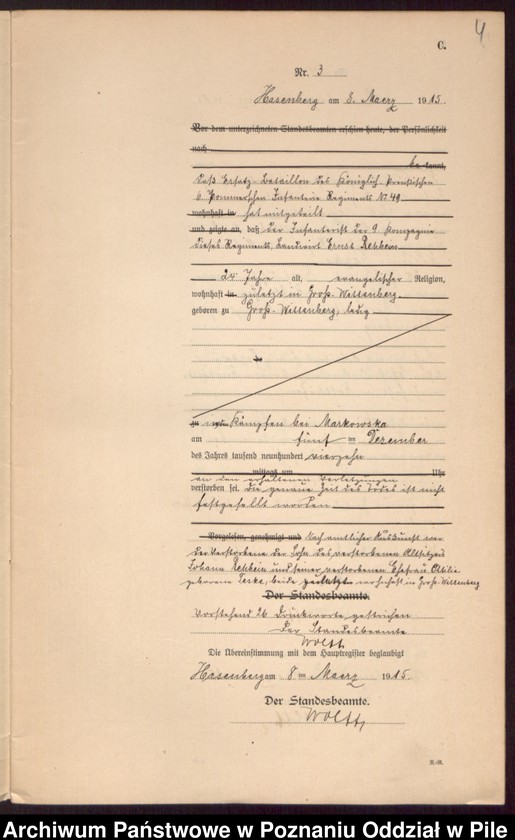 4
C.
Nr. 3
Hasenberg am 8. Maerz 1915.
Vor dem unterzeichneten Standesbeamten erschien heute, der Persönlichkeit
nach
be kannt,
Das Ersatz-Bataillon des Königlich Preußischen
6. Pommerschen Infanterie Regiments No 49
wohnhaft in hat mitgeteilt
und zeigte an, daß der Infanterist der 9. Kompagnie
dieses Regiments, Landwirt Ernst Rehbein
24 Jahre alt, evangelischer Religion,
wohnhaft in zuletzt in Groß-Wittenberg
geboren zu Groß-Wittenberg, ledig
zu in den Kämpfen bei Markowska
am fünften Dezember
des Jahres tausend neunhundert vierzehn
mittags um Uhr
an den erhaltenen Verletzungen
verstorben sei. Die genaue Zeit des Todes ist nicht
festgestellt worden
Vorgelesen, genehmigt und Nach amtlicher Auskunft war
der Verstorbene der Sohn des verstorbenen Altsitzers
Johann Rehbein und seiner verstorbenen Ehefrau Ottilie
geborene Teske, beide zuletzt wohnhaft in Groß-Wittenberg
Der Standesbeamte.
Vorstehend 26 Druckworte gestrichen
Der Standesbeamte
Wolff
Die Übereinstimmung mit dem Hauptregister beglaubigt
Hasenberg am 8ten Maerz 1915.
Der Standesbeamte.
Wolff
Archiwum Państwowe w Poznaniu Oddział w Pile